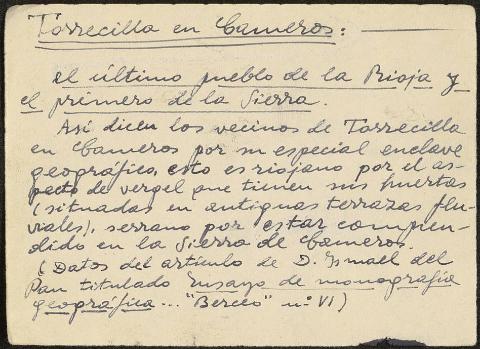 Torrecilla en Cameros:
el último pueblo de la Rioja y
el primero de la Sierra.
Así dicen los vecinos de Torrecilla
en Cameros por su especial enclave
geográfico, esto es riojano por el as-
pecto de vergel que tienen sus huertas
(situadas en antiguas terrazas flu-
viales), serrano por estar compren-
dido en la Sierra de Cameros.
(Datos del artículo de D. Ismael del
Pan titulado Ensayo de monografía
geográfica... "Berceo" nº VI)